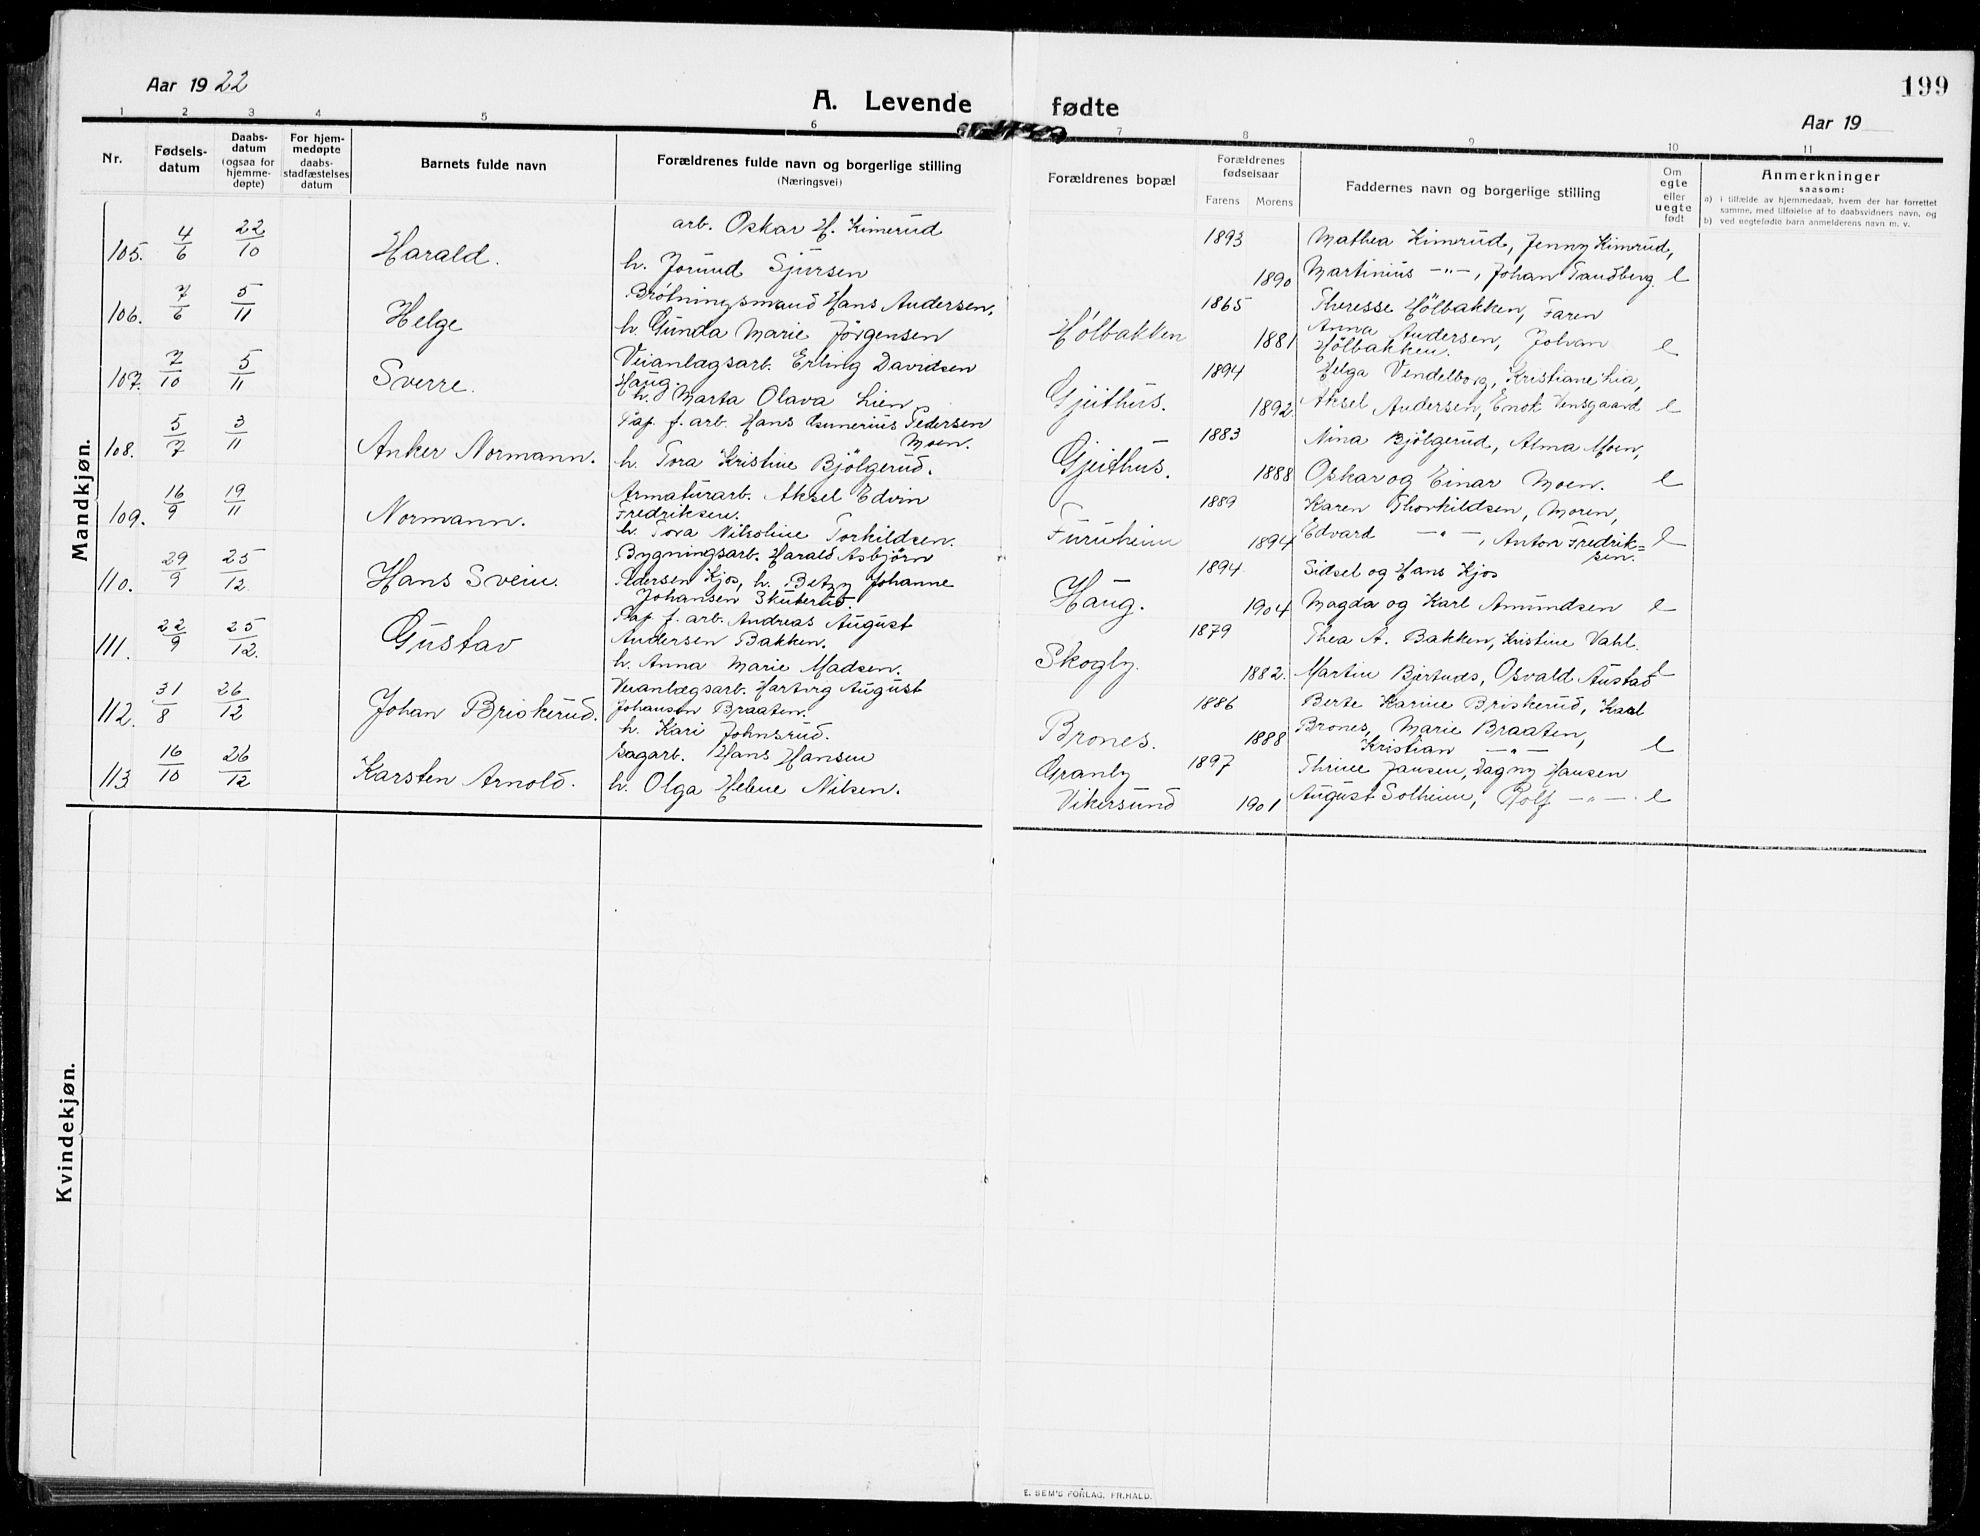 Aar 1922
A. Levende fødte
199
Aar 19
1 2 3 4 5 6 7 8 9 10 11
Nr.
Fødsels-
datum
Daabs-
datum
(ogsaa for
hjemme-
døpte)
For hjem-
medøpte
daabs-
stadfæstelses
datum
Barnets fulde navn
Forældrenes fulde navn og borgerlige stilling
(Næringsvei)
Forældrenes bopæl
Forældrenes
fødselsaar
Farens Morens
Faddernes navn og borgerlige stilling
Om
egte
eller
uegte
født
Anmerkninger
saasom:
a) i tilfælde av hjemmedaab, hvem der har forrettet
samme, med tilføielse af to daabsvidners navn, og
b) ved uegtefødte barn anmelderens navn m. v.
Mandkjøn.
105. 4/6 22/10 Harald.
arb. Oskar H. Kimerud
h. Jorund Sjursen
1893
1890
Mathea Kimrud, Jenny Kimrud,
Martinius -"-, Johan Sandberg e
106. 7/6 5/11 Helge
Brøtningsmand Hans Andersen,
h. Gunda Marie Jørgensen
Hølbakken
1865
1881
Theresse Hølbakken, Faren
Anna Andersen, Johan
Hølbakken. e
107. 7/10 5/11 Sverre.
Veianlægsarb. Erling Davidsen
Haug.
h. Marta Olava Lien
Gjeithus.
1894
1892.
Helga Vendelborg, Kristiane Lia,
Aksel Andersen, Enok Vensgaard e
108. 5/7 3/11 Anker Normann.
Pap. f. arb. Hans Gunerius Pedersen
Moen.
h. Tora Kristine Bjölgerud.
Gjeithus.
1883
1888
Nina Bjölgerud, Alma Moen,
Oskar og Einar Moen. e
109. 16/9 19/11 Normann.
Armaturarb. Aksel Edvin
Fredriksen.
h. Tora Nikoline Torkildsen.
Furuheim
1889
1894
Karen Thorkildsen, Moren,
Edvard -"-, Anton Fredrik=
sen. e
110. 29/9 25/12. Hans Svein.
Bygningsarb. Harald Asbjørn
Pedersen Kjos, h. Betzy Johanne
Johansen Skuterud.
Haug.
1894
1904
Sidsel og Hans Kjos
Magda og Karl Amundsen e
111. 22/9 25/12. Gustav
Pap. f. arb. Andreas August
Andersen Bakken.
h. Anna Marie Madsen.
Skogly.
1879
1882.
Thea A. Bakken, Kristine Vahl.
Martin Bjertnæs, Osvald Austad e
112. 31/8 26/12 Johan Briskerud.
Veianlægsarb. Hartvig August
Johansen Braaten.
h. Kari Johnsrud.
Brones.
1886
1888
Berte Karine Briskerud, Karl
Brones, Marie Braaten,
Kristian -"- e
113 16/10 26/12 Karsten Arnold.
Sagarb. Hans Hansen
h. Olga Helene Nilsen.
Granly
Vikersund
1897
1901
Thrine Jansen, Dagny Hansen
August Solheim, Rolf -"-. e
Kvindekjøn.
E. SEM'S FORLAG, FR.HALD.